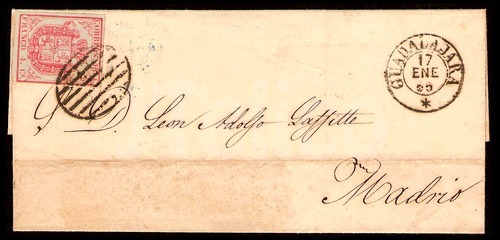 CORREOS
FRANCO 4 Cs
GUADALAJARA
17
ENE
S. D. Leon Adolfo Laffitte
en
Madrid